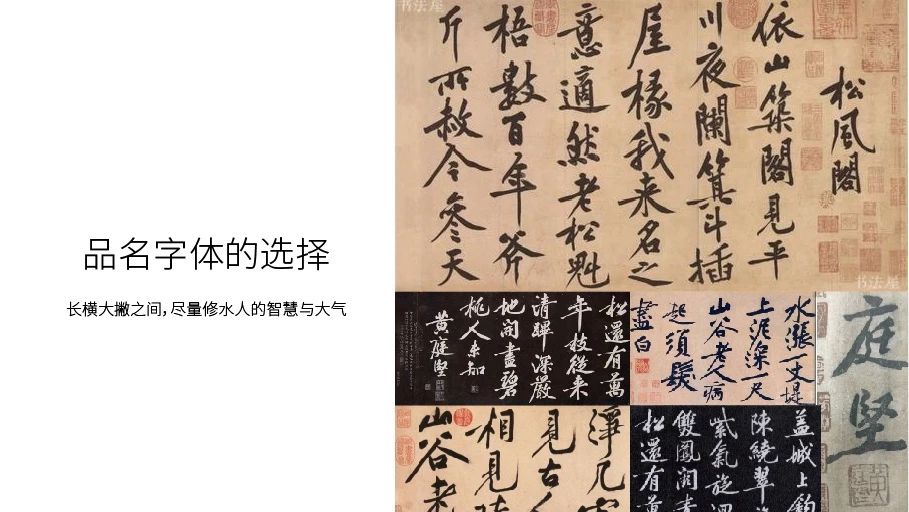 品名字体的选择
长横大撇之间,尽量修水人的智慧与大气
书法屋
松風閣
依山築閣見平
川夜闌箕斗插
屋椽我来名之
意適然老松魁
梧數百年斧
斤所赦今參天
书法屋
松還有萬
年枝從来
清暉深嚴
地閒盡碧
桃人未知
黃庭堅
水漲一丈堤
上泥深一尺
山谷老人病
起須鬓
盡白
庭堅
見古人
相見
山谷老
盖城上鉤
陳繞翠
紫氣旋
雙鳳闕
松還有萬